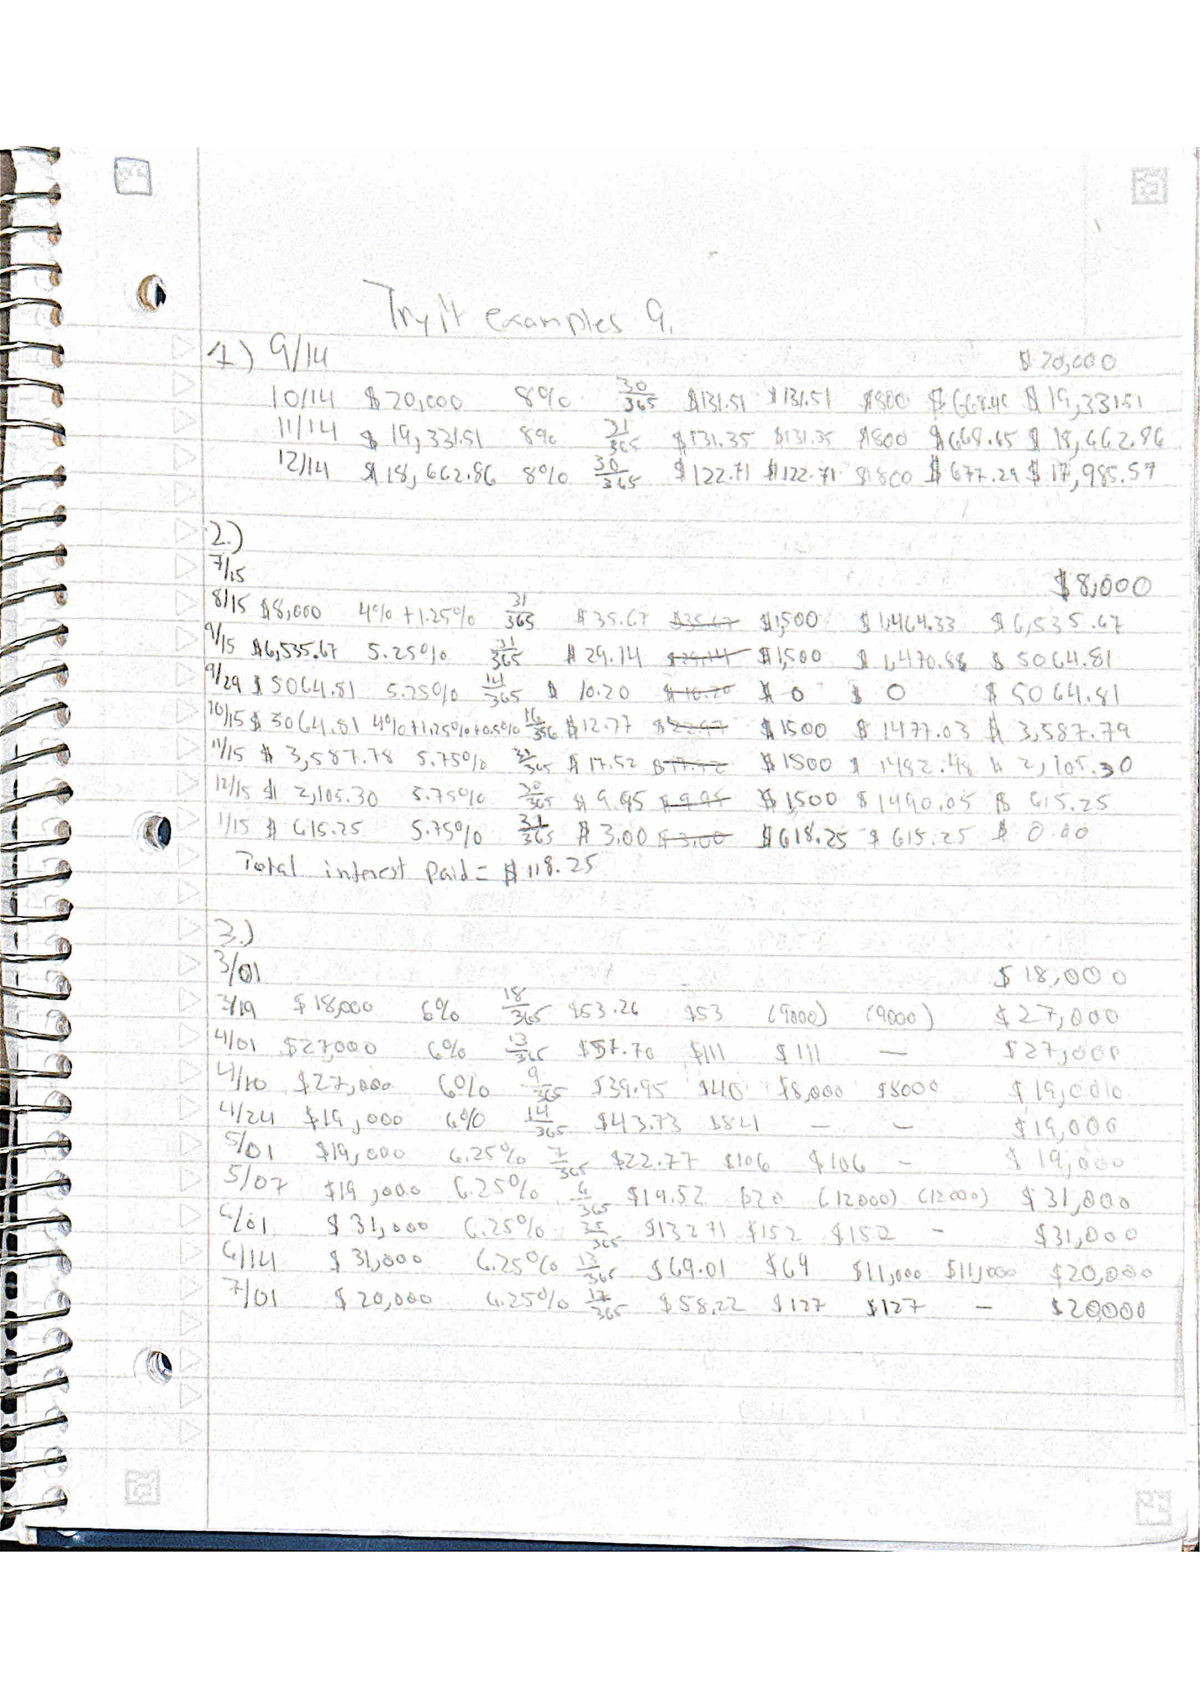 Try it examples 9.
1) 9/14 $20,000
10/14 $20,000 8% 30/365 $131.51 $131.51 $800 $668.49 $19,331.51
11/14 $19,331.51 8% 31/365 $131.35 $131.35 $800 $668.65 $18,662.86
12/14 $18,662.86 8% 30/365 $122.71 $122.71 $800 $677.29 $17,985.57
2.)
7/15 $8,000
8/15 $8,000 4%+1.25% 31/365 $35.67 $35.67 $1,500 $1,464.33 $6,535.67
9/15 $6,535.67 5.25% 31/365 $29.14 $29.14 $1,500 $1,470.86 $5064.81
9/29 $5064.81 5.25% 14/365 $10.20 $10.20 $0 $0 $5064.81
10/15 $5064.81 4%+1.25%+0.5% 16/356 $12.77 $1500 $1477.03 $3,587.79
11/15 $3,587.78 5.75% 31/365 $17.52 $17.52 $1500 $1482.48 $2,105.30
12/15 $2,105.30 5.75% 30/365 $9.95 $9.95 $1,500 $1490.05 $615.25
1/15 $615.25 5.75% 31/365 $3.00 $3.00 $618.25 $615.25 $0.00
Total interest paid = $118.25
3.)
3/01 $18,000
3/19 $18,000 6% 18/365 $53.26 $53 (9000) (9000) $27,000
4/01 $27,000 6% 13/365 $57.70 $111 $111 — $27,000
4/10 $27,000 6% 9/365 $39.95 $40 $8,000 $8000 $19,000
4/24 $19,000 6% 14/365 $43.73 $84 — — $19,000
5/01 $19,000 6.25% 7/365 $22.77 $106 $106 — $19,000
5/07 $19,000 6.25% 6/365 $19.52 $20 (12000) (12000) $31,000
6/01 $31,000 6.25% 25/365 $132.71 $152 $152 — $31,000
6/14 $31,000 6.25% 13/365 $69.01 $69 $11,000 $11,000 $20,000
7/01 $20,000 6.25% 17/365 $58.22 $127 $127 — $20,000